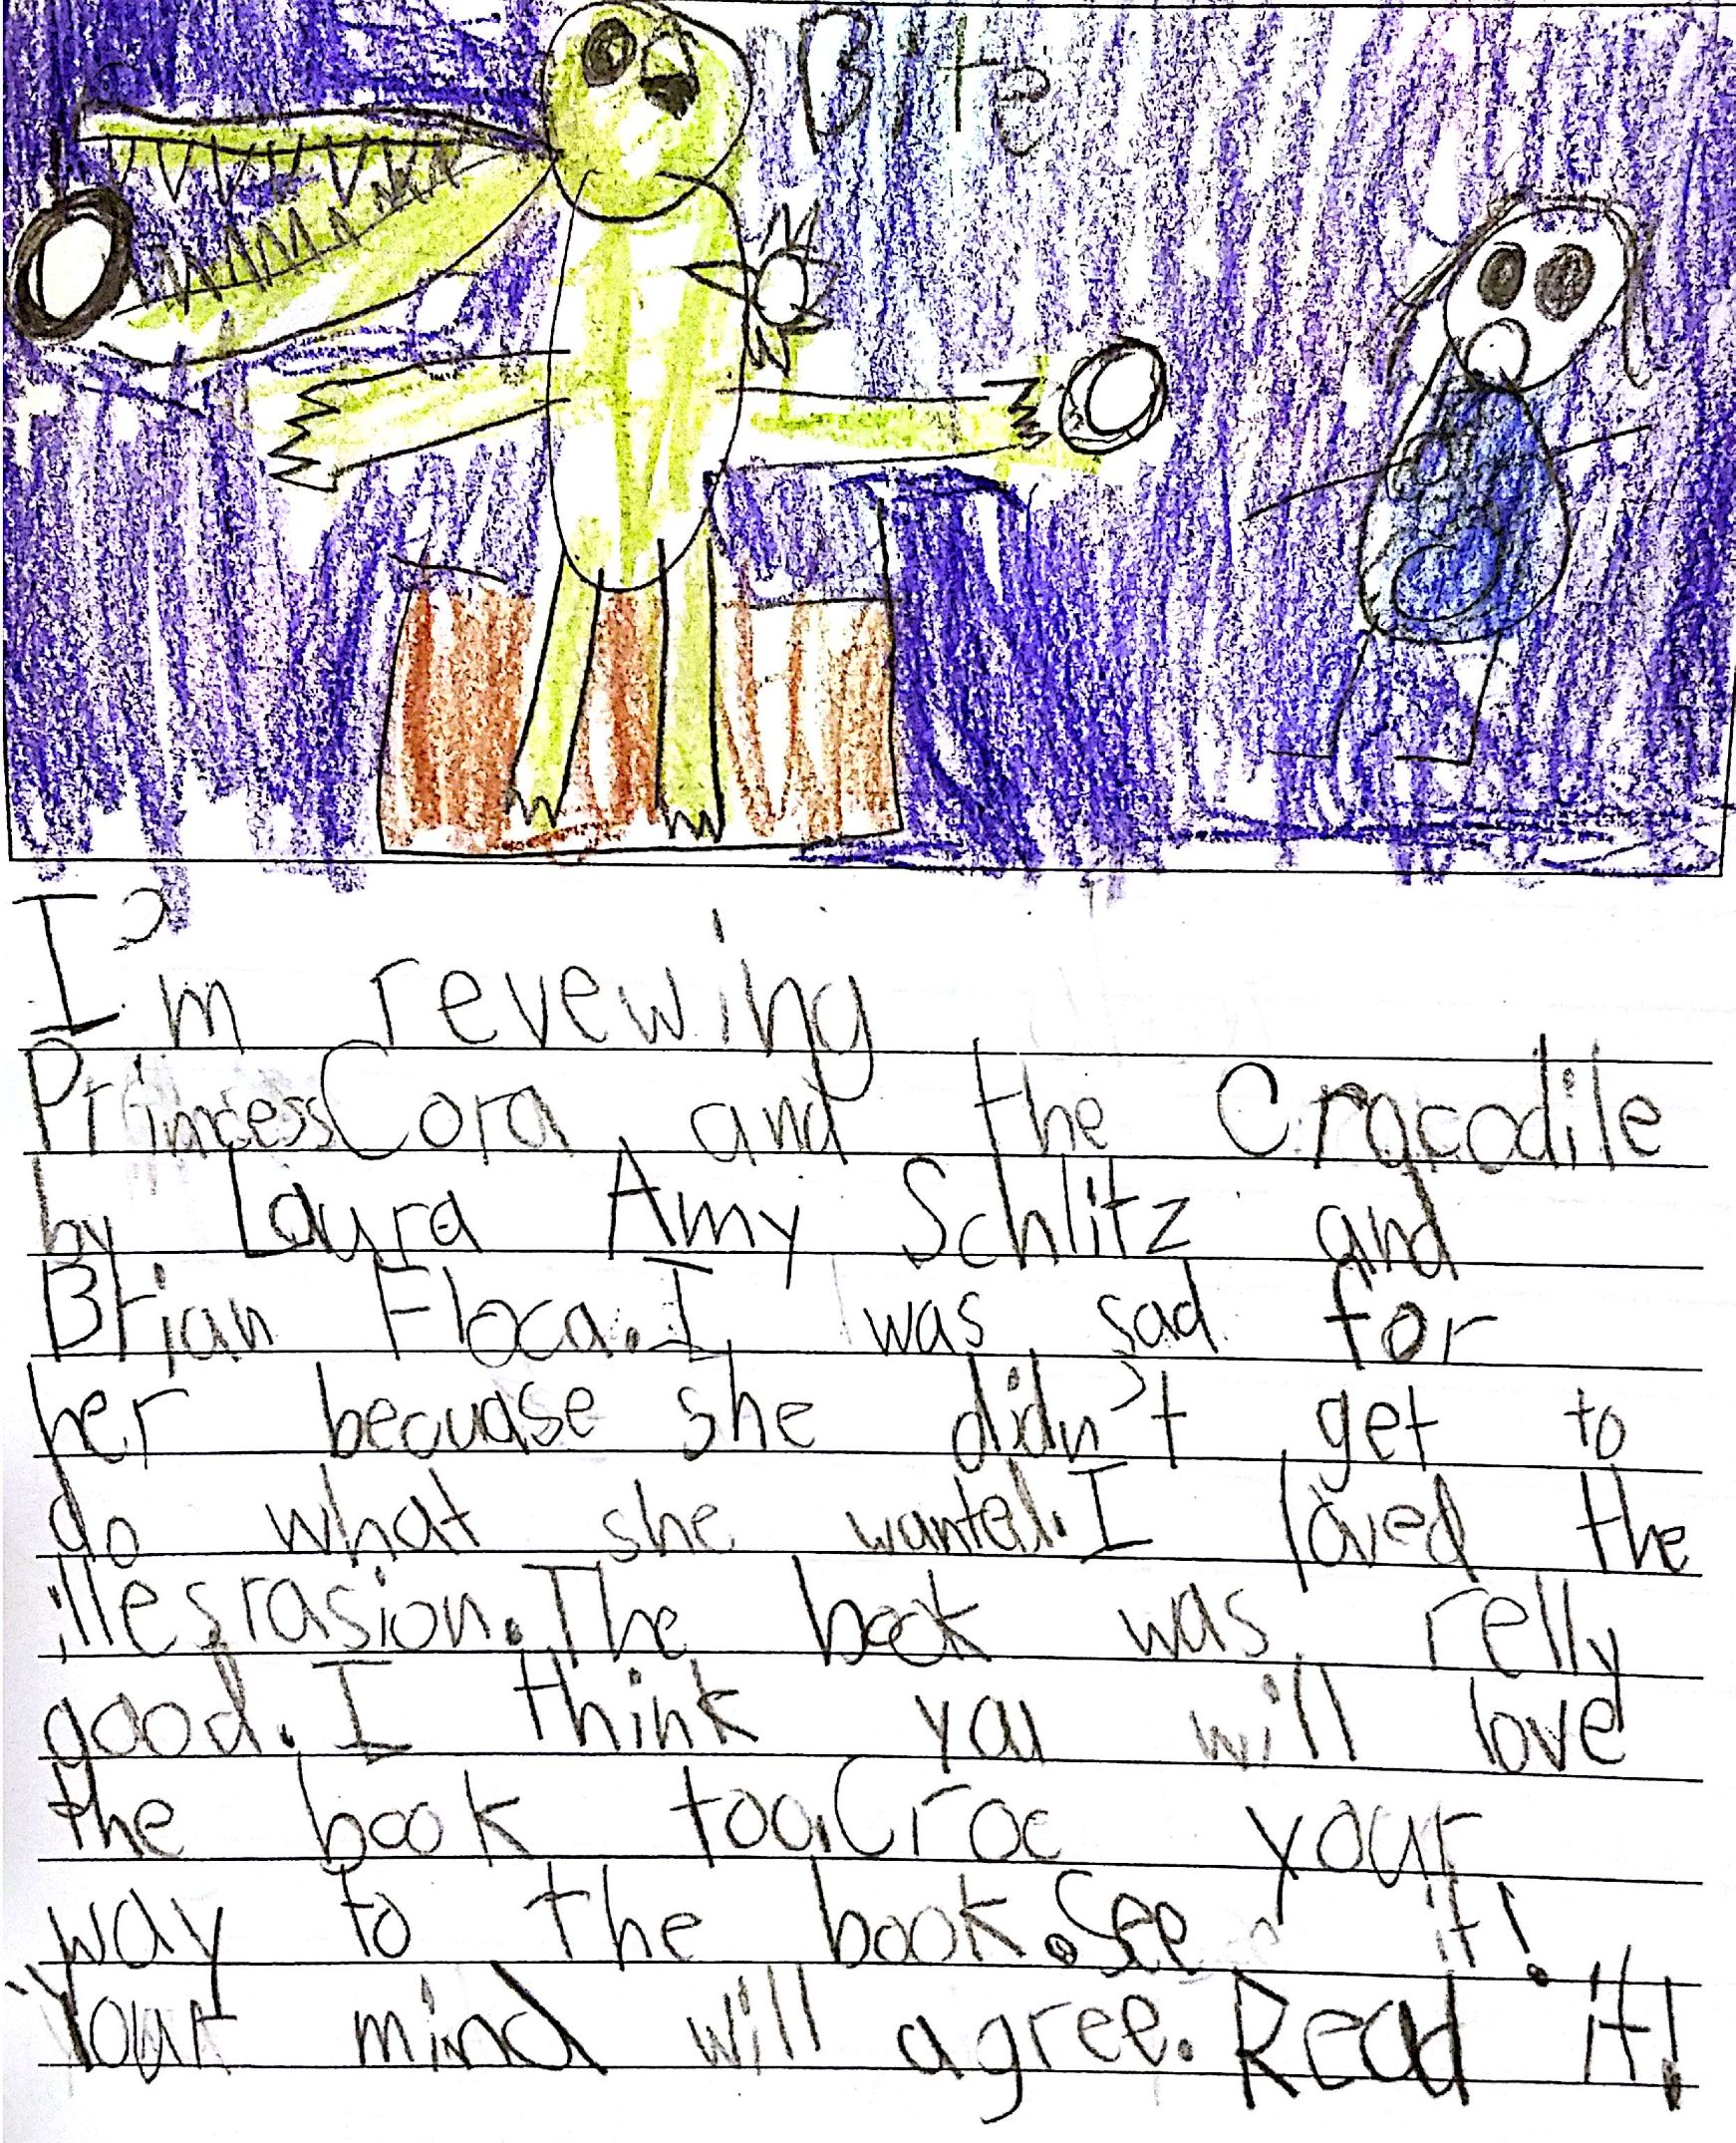 Bite
I'm revewing
Princess Cora and the Crocodile
by Laura Amy Schlitz and
Brian Floca. I was sad for
her becuase she didn't get to
do what she wanted. I loved the
illesrasion. The book was relly
good. I think you will love
the book too. Croc your
way to the book. See it!
Your mind will agree. Read it!